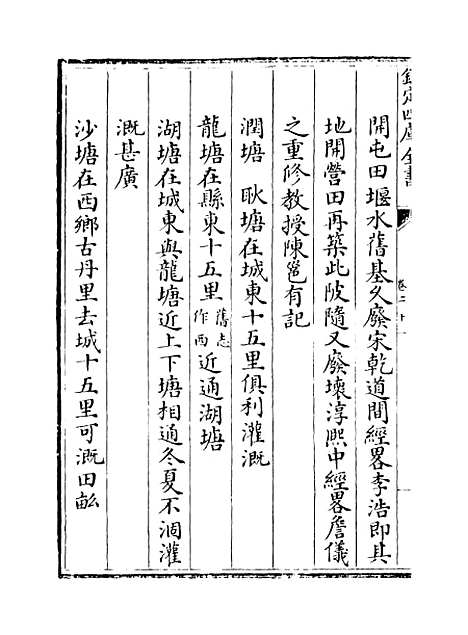 欽定四庫全書
卷二十
開屯田堰水舊基久廢宋乾道間經畧李浩即其
地開營田再築此陂隨又廢壞淳熈中經畧詹儀
之重修教授陳邕有記
潤塘 耿塘在城東十五里俱利灌溉
龍塘在縣東十五里舊志作西近通湖塘
湖塘在城東與龍塘近上下塘相通冬夏不涸灌
溉甚廣
沙塘在西鄉古丹里去城十五里可溉田畝